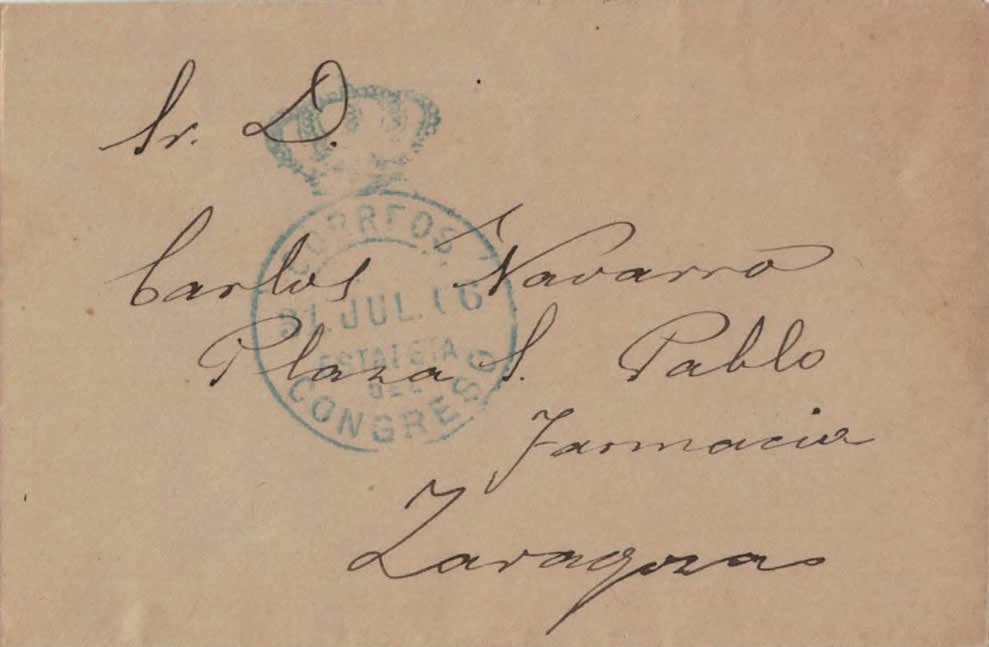 Sr. D.
Carlos Navarro
Plaza S. Pablo
Farmacia
Zaragoza
CORREOS
JUL.
ESTAFETA
DEL
CONGRESO